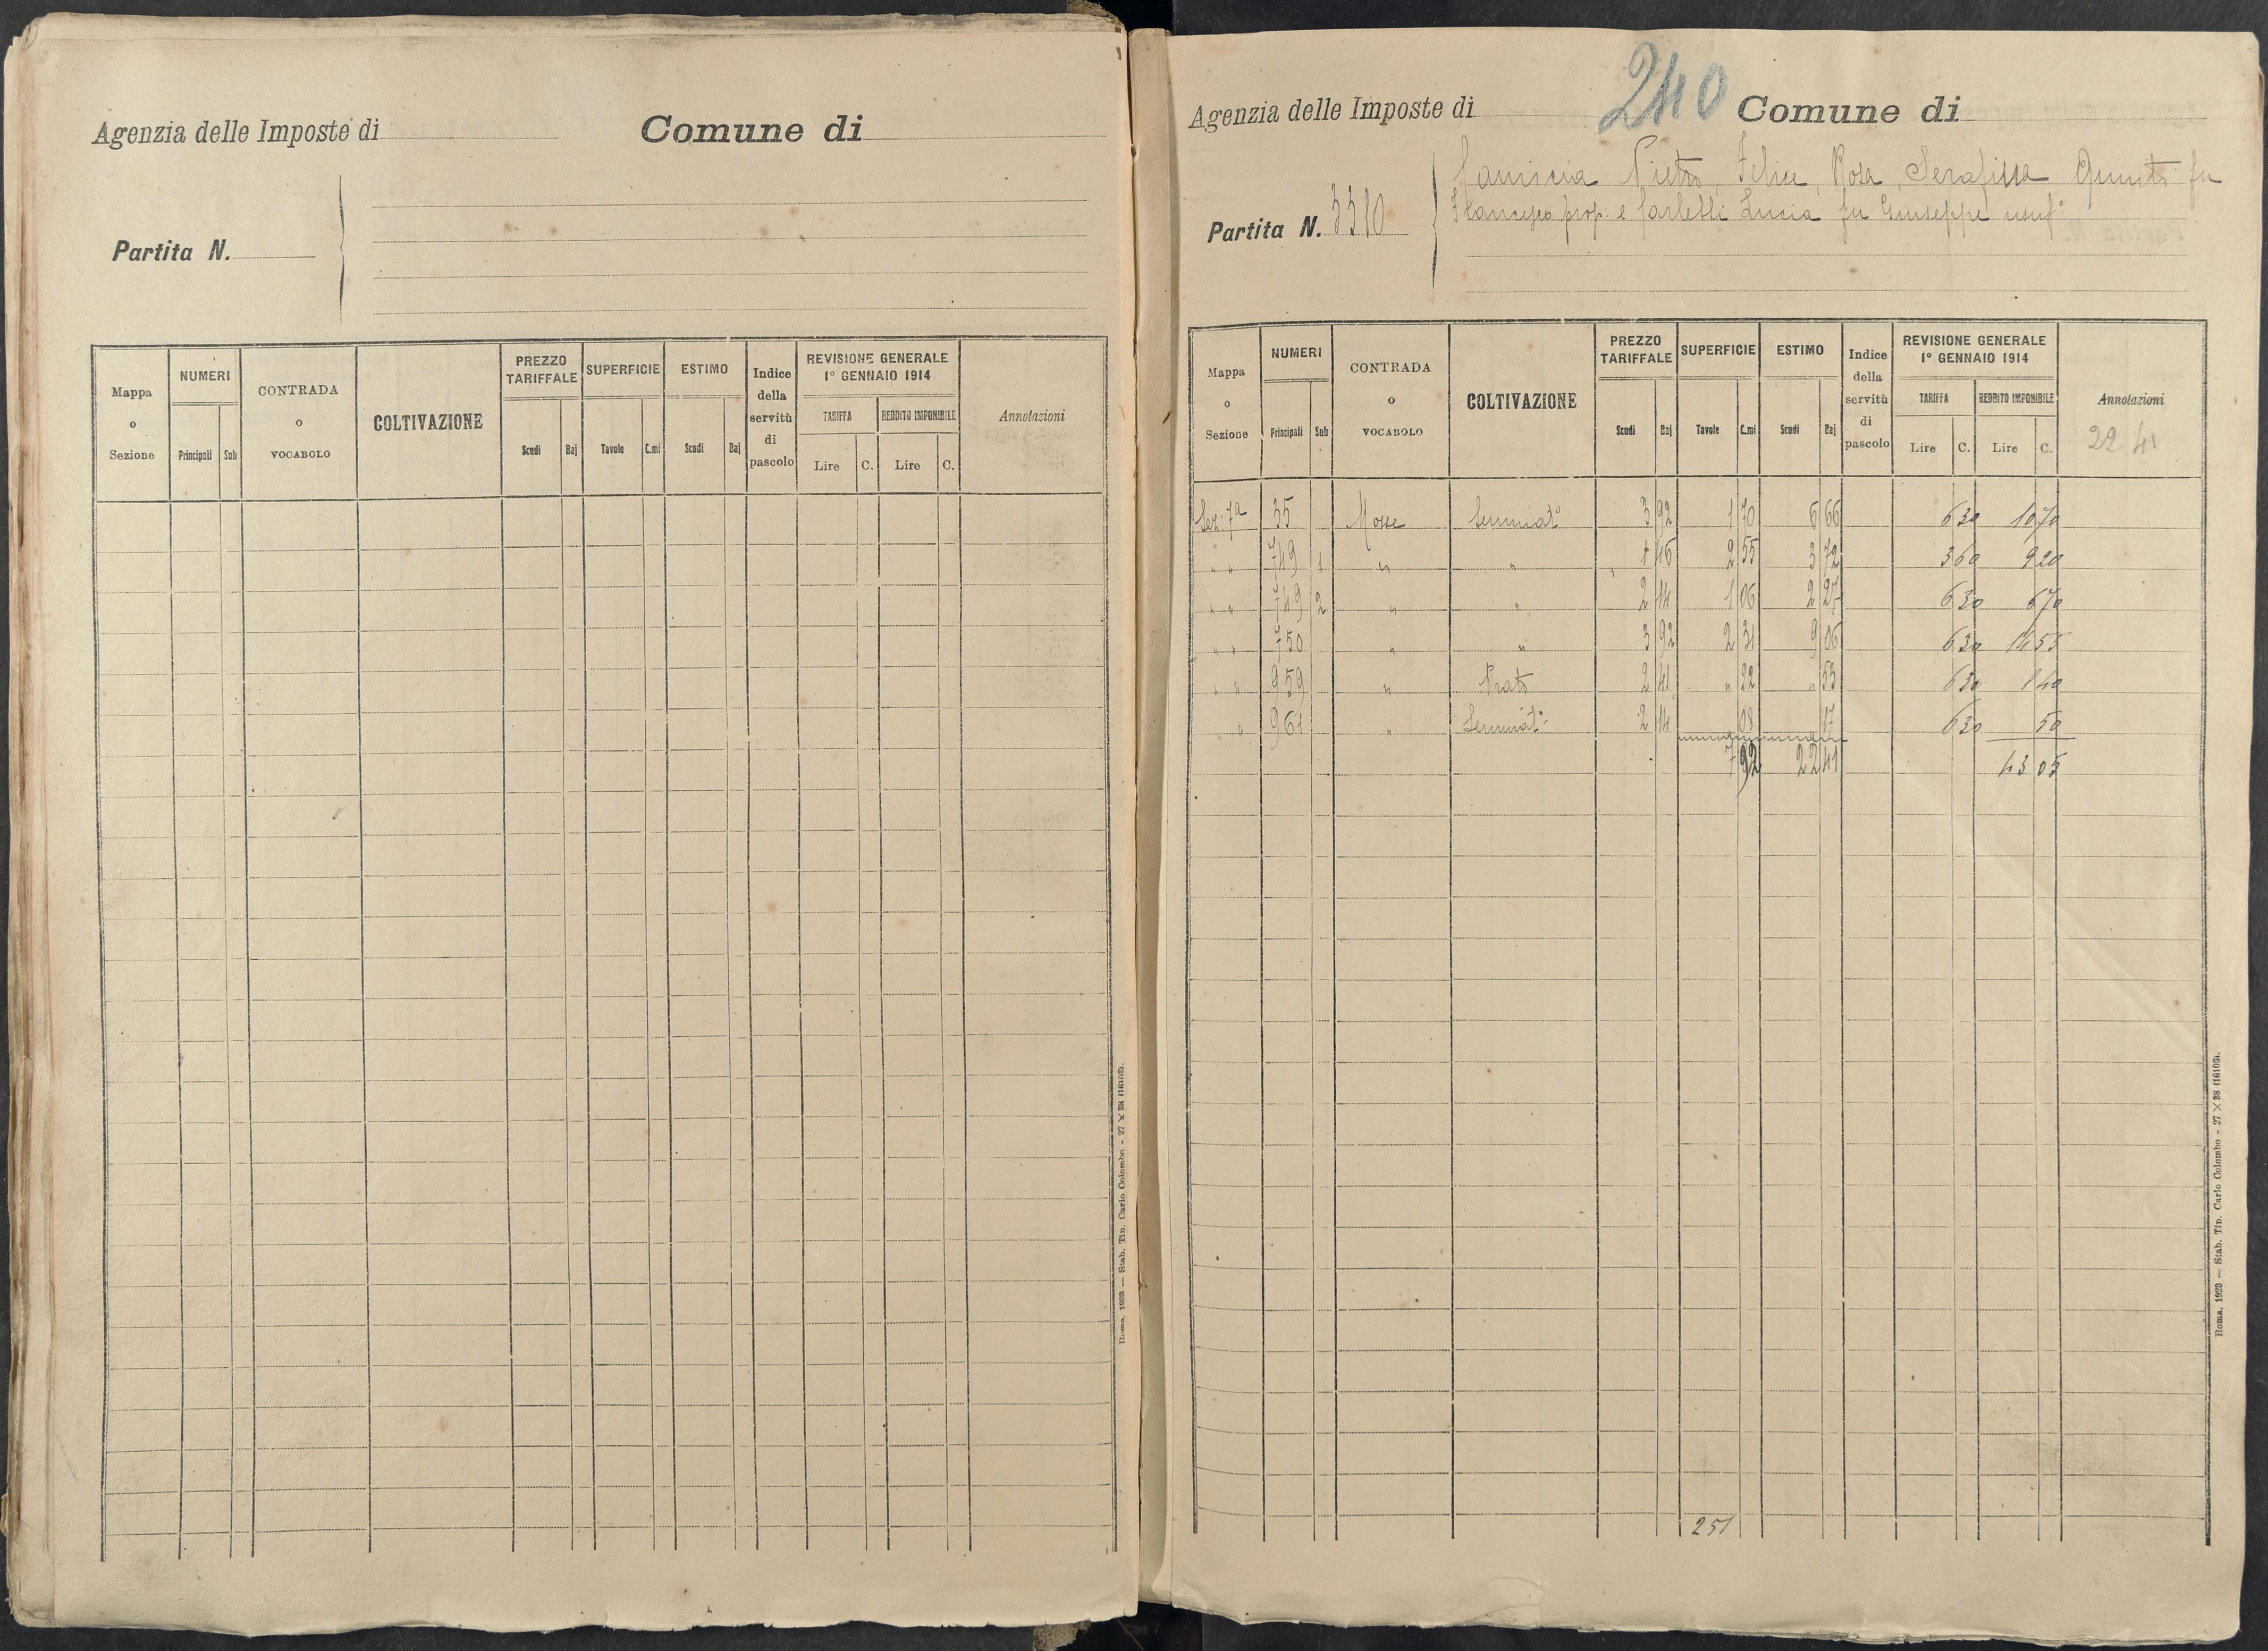 Agenzia delle Imposte di Comune di
Partita N.
Mappa o Sezione NUMERI Principali Sub CONTRADA o VOCABOLO COLTIVAZIONE PREZZO TARIFFALE Scudi Baj SUPERFICIE Tavole C.mi ESTIMO Scudi Baj Indice della servitù di pascolo REVISIONE GENERALE 1° GENNAIO 1914 TARIFFA Lire C. REDDITO IMPONIBILE Lire C. Annotazioni
Roma, 1923 — Stab. Tip. Carlo Colombo - 27 × 38 (16103).
240
Agenzia delle Imposte di Comune di
Partita N. 3310
Camicia Pietro, Felice, Rosa, Serafina Quinto fu
Francesco prop. e Carletti Lucia fu Giuseppe usuf.º
Mappa o Sezione NUMERI Principali Sub CONTRADA o VOCABOLO COLTIVAZIONE PREZZO TARIFFALE Scudi Baj SUPERFICIE Tavole C.mi ESTIMO Scudi Baj Indice della servitù di pascolo REVISIONE GENERALE 1° GENNAIO 1914 TARIFFA Lire C. REDDITO IMPONIBILE Lire C. Annotazioni
22 41
Sez. 7ª 35 Mosse Seminat.º 3 92 1 70 6 66 6 30 10 70
" " 749 1 " " 1 46 2 55 3 72 3 60 9 20
" " 749 2 " " 2 14 1 06 2 27 6 30 6 70
" " 750 " " 3 92 2 31 9 06 6 30 14 55
" " 959 " Prato 2 41 " 22 " 53 6 30 1 40
" " 961 " Seminat.º 2 14 08 17 6 30 50
7 92 22 41 43 05
251
Roma, 1923 — Stab. Tip. Carlo Colombo - 27 × 38 (16103).